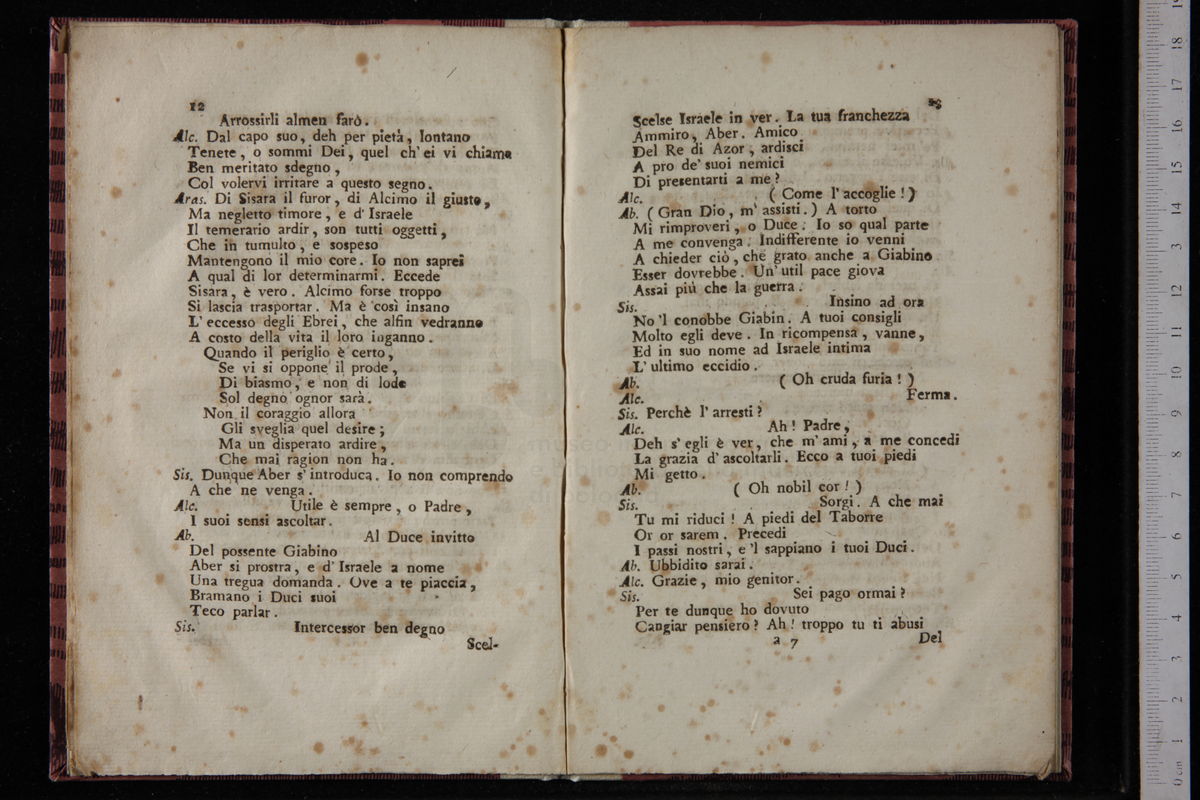 12
Arrossirli almen farò.
Alc. Dal capo suo, deh per pietà, lontano
Tenete, o sommi Dei, quel ch'ei vi chiama
Ben meritato sdegno,
Col volervi irritare a questo segno.
Aras. Di Sisara il furor, di Alcimo il giusto,
Ma negletto timore, e d'Israele
Il temerario ardir, son tutti oggetti,
Che in tumulto, e sospeso
Mantengono il mio core. Io non saprei
A qual di lor determinarmi. Eccede
Sisara, è vero. Alcimo forse troppo
Si lascia trasportar. Ma è così insano
L'eccesso degli Ebrei, che alfin vedranno
A costo della vita il loro inganno.
Quando il periglio è certo,
Se vi si oppone il prode,
Di biasmo, e non di lode
Sol degno ognor sarà.
Non il coraggio allora
Gli sveglia quel desire;
Ma un disperato ardire,
Che mai ragion non ha.
Sis. Dunque Aber s'introduca. Io non comprendo
A che ne venga.
Alc. Utile è sempre, o Padre,
I suoi sensi ascoltar.
Ab. Al Duce invitto
Del possente Giabino
Aber si prostra, e d'Israele a nome
Una tregua domanda. Ove a te piaccia,
Bramano i Duci suoi
Teco parlar.
Sis. Intercessor ben degno
Scel-
Scelse Israele in ver. La tua franchezza
Ammiro, Aber. Amico
Del Re di Azor, ardisci
A pro de'suoi nemici
Di presentarti a me?
Alc. (Come l'accoglie!)
Ab. (Gran Dio, m'assisti.) A torto
Mi rimproveri, o Duce. Io so qual parte
A me convenga. Indifferente io venni
A chieder ciò, che grato anche a Giabino
Esser dovrebbe. Un'util pace giova
Assai più che la guerra.
Sis. Insino ad ora
No'l conobbe Giabin. A tuoi consigli
Molto egli deve. In ricompensa, vanne,
Ed in suo nome ad Israele intima
L'ultimo eccidio.
Ab. (Oh cruda furia!)
Alc. Ferma.
Sis. Perchè l'arresti?
Alc. Ah! Padre,
Deh s'egli è ver, che m'ami, a me concedi
La grazia d'ascoltarli. Ecco a tuoi piedi
Mi getto.
Ab. (Oh nobil cor!)
Sis. Sorgi. A che mai
Tu mi riduci! A piedi del Taborre
Or or sarem. Precedi
I passi nostri, e'l sappiano i tuoi Duci.
Ab. Ubbidito sarai.
Alc. Grazie, mio genitor.
Sis. Sei pago ormai?
Per te dunque ho dovuto
Cangiar pensiero? Ah! troppo tu ti abusi
a 7 Del